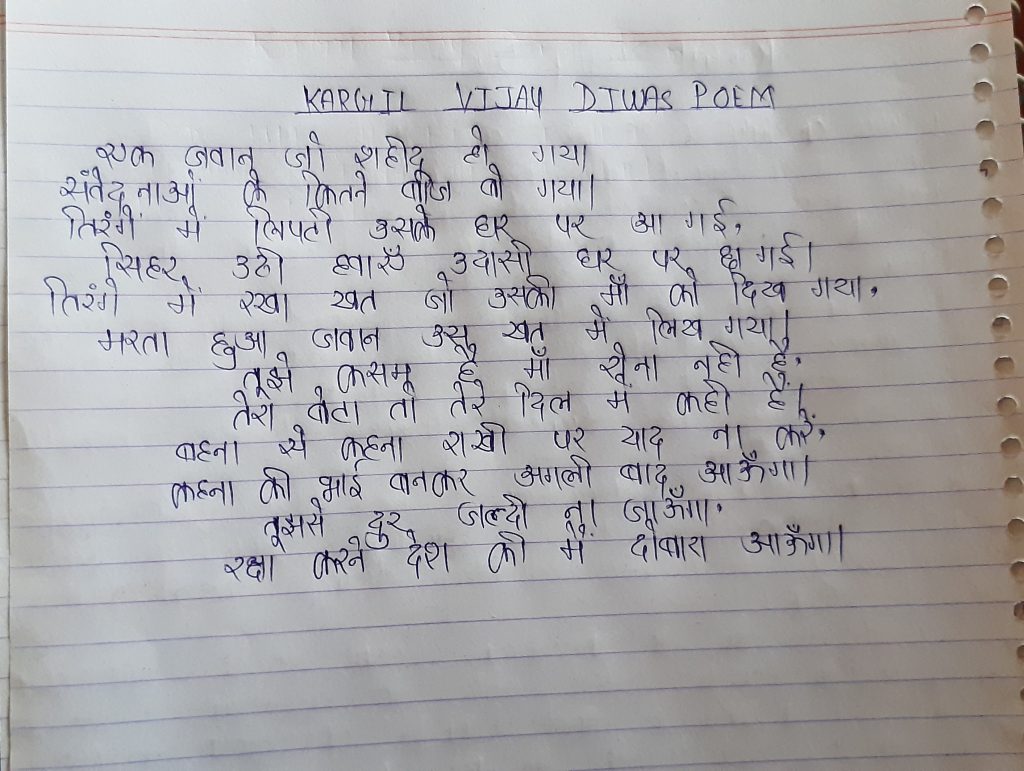 KARGIL VIJAY DIWAS POEM
एक जवान जो शहीद हो गया
संवेदनाओं के कितने बीज बो गया।
तिरंगें में लिपटी उसके घर पर आ गई,
सिहर उठी हवाएँ उदासी घर पर छा गई।
तिरंगे में रखा खत जो उसकी माँ को दिख गया,
मरता हुआ जवान उस खत में लिख गया।
तूझे कसम है माँ रोना नही है,
तेरा बेटा तो तेरे दिल में कही है।
बहना से कहना राखी पर याद ना करें,
कहना की भाई बनकर अगली बाद आऊँगा।
तूझसे दुर जल्दी ना जाऊँगा,
रक्षा करने देश की मैं दोबारा आऊँगा।